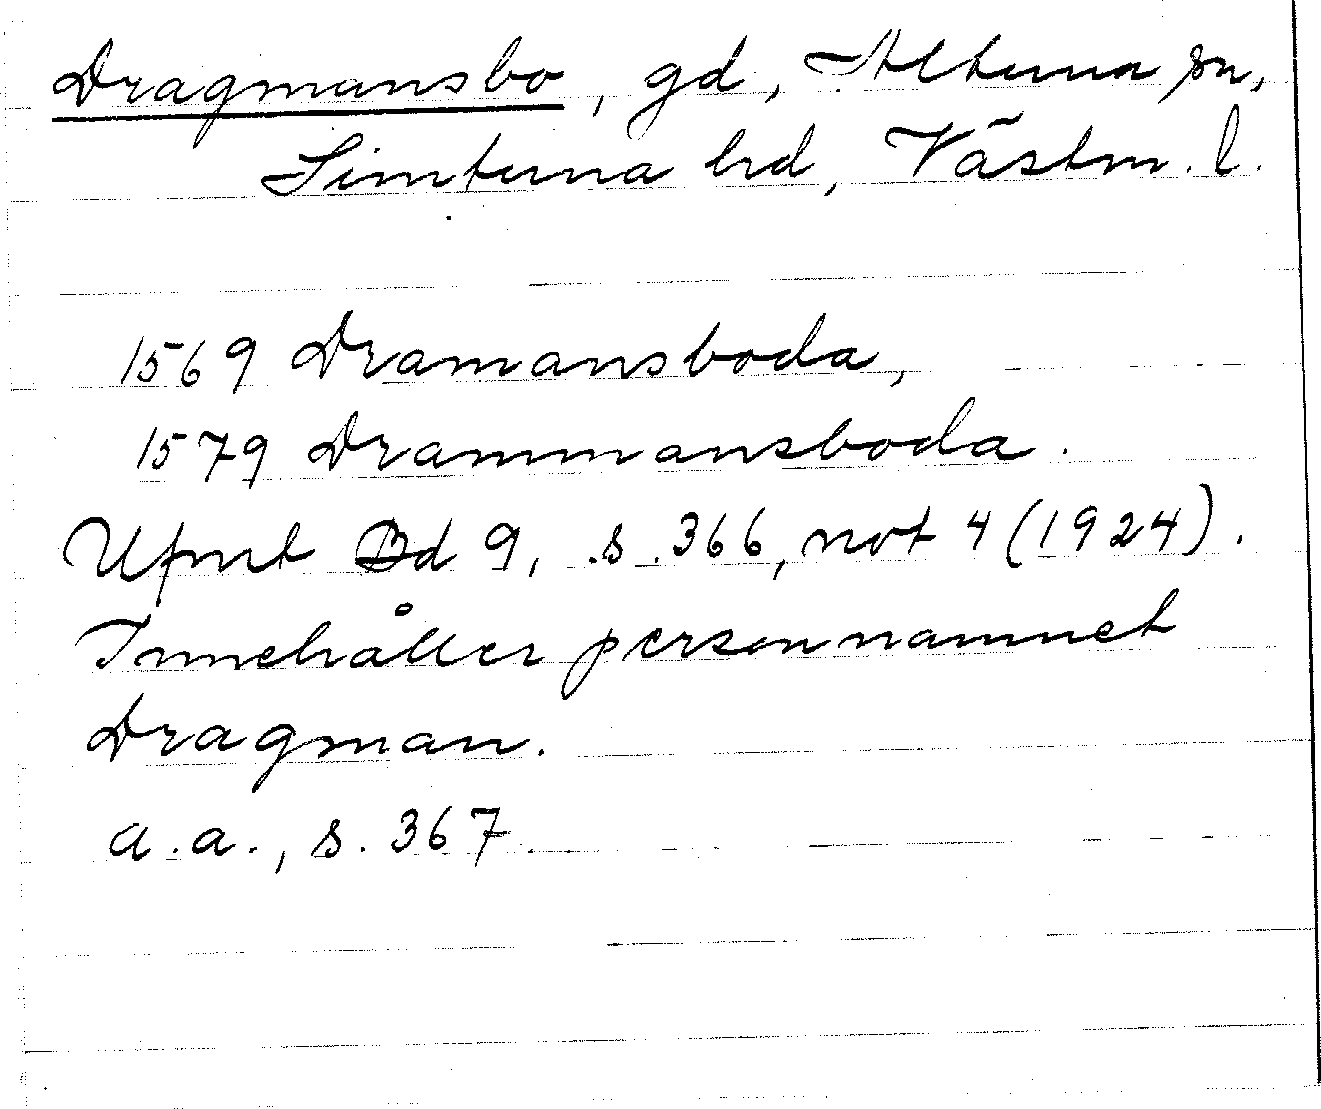 Dragmansbo, gd, Altuna sn,
Simtuna hd, Västm. l.
1569 Dramansboda,
1579 Drammansboda.
Ufmt Bd 9, s. 366, not 4 (1924).
Innehåller personnamnet
Dragman.
a.a., s. 367